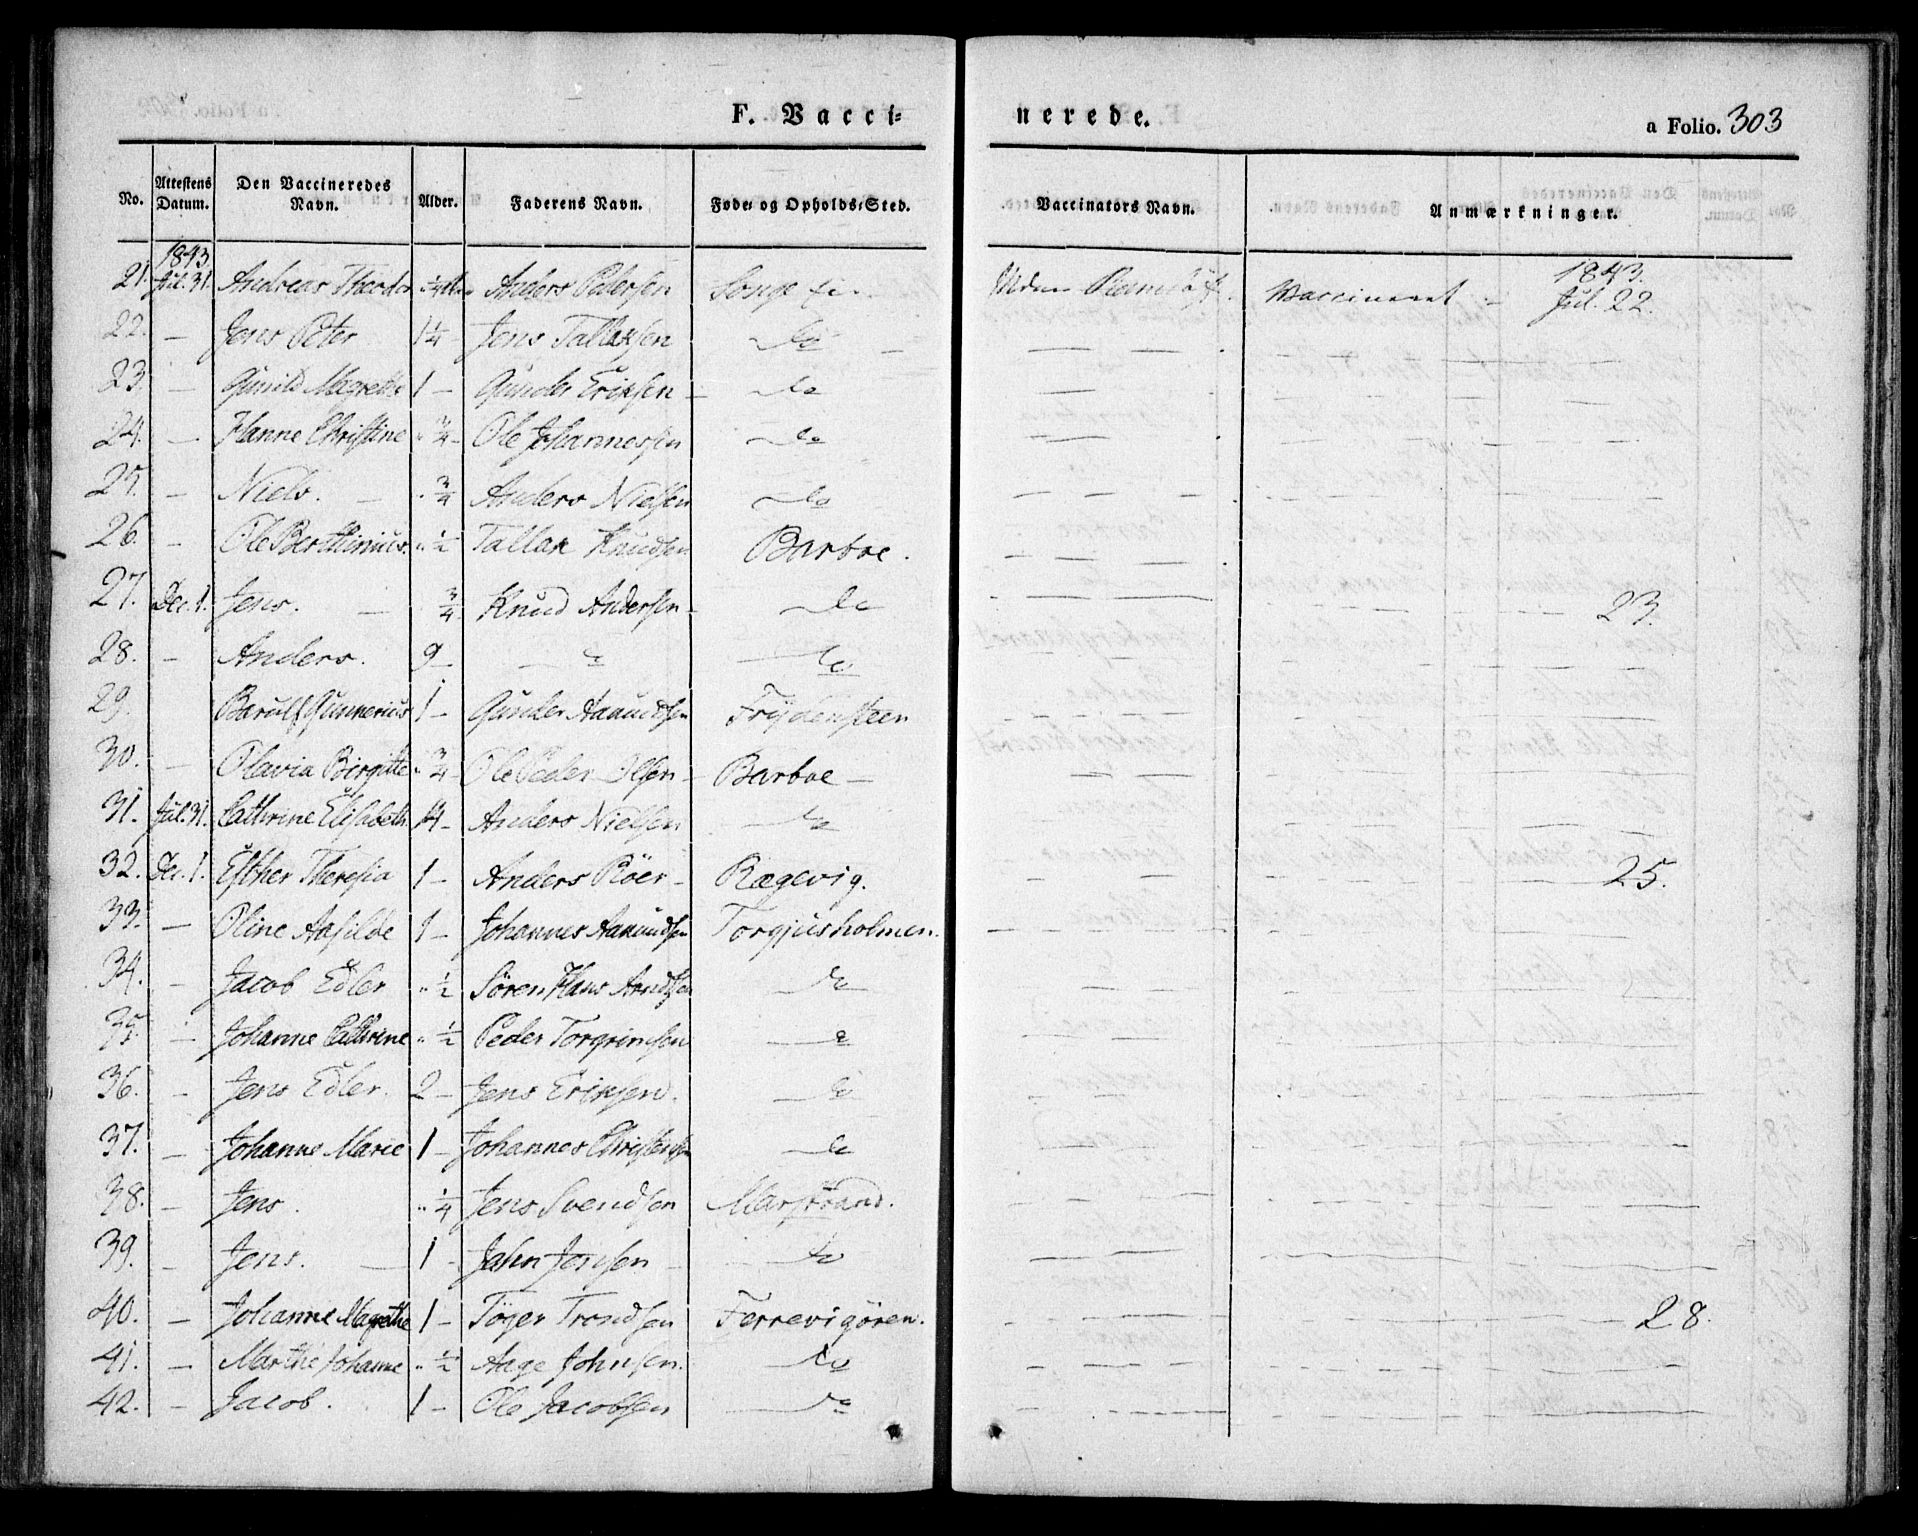 F. Vacci=nerede.
a Folio. 303
No. | Attestens Datum. | Den Vaccineredes Navn. | Alder. | Faderens Navn. | Føde- og Opholds-Sted. | Vaccinators Navn. | Anmærkninger.
1843. 1843.
21. Jul. 31. Andreas Theodor Anders Pedersen Songe Vaccineret - Jul. 22.
22. — Jens Peter 1¼ Jens Tallaksen do
23. — Gunild Magrethe 1 — Gunder Eriksen — do
24. — Hanne Christine " ¾ — Ole Johannessen do
25. — Niels. — " ¾ Anders Nielsen do
26. — Ole Berthinius. " ½ Tallak Knudsen Barboe.
27. Dec. 1. Jens. — ¾ Knud Andersen — do 23.
28. — Anders. 9 — do do
29. Barulf Gunnerius 1 — Gunder Aanundsen Frydensteen
30. — Olavia Birgitte " ¾ — Ole Peder Olsen — Barboe —
31. Jul. 31. Cathrine Elisabeth. 14 — Anders Nielsen do
32. Dec. 1. Esther Theresia 1 — Anders Röer — Rægevig. 25.
33. — Oline Aasilde 1 — Johannes Aanundsen Torgjusholmen.
34. — Jacob Edler " ½ Sören Hans Arndtsen do
35. — Johanne Cathrine " ½ Peder Torgrimsen do
36. — Jens Edler. 2 — Jens Eriksen. do
37. — Johanne Marie 1 — Johannes Christensen do
38. — Jens. " ¼ Jens Svendsen Marstrand.
39. — Jens. — 1 — Jahn Jensen — do
40. — Johanne Magrethe 1 — Töger Trondsen Ferrevigören. 28.
41. — Marthe Johanne " ½ Aage Johnsen. do
42. — Jacob. 1 — Ole Jacobsen do